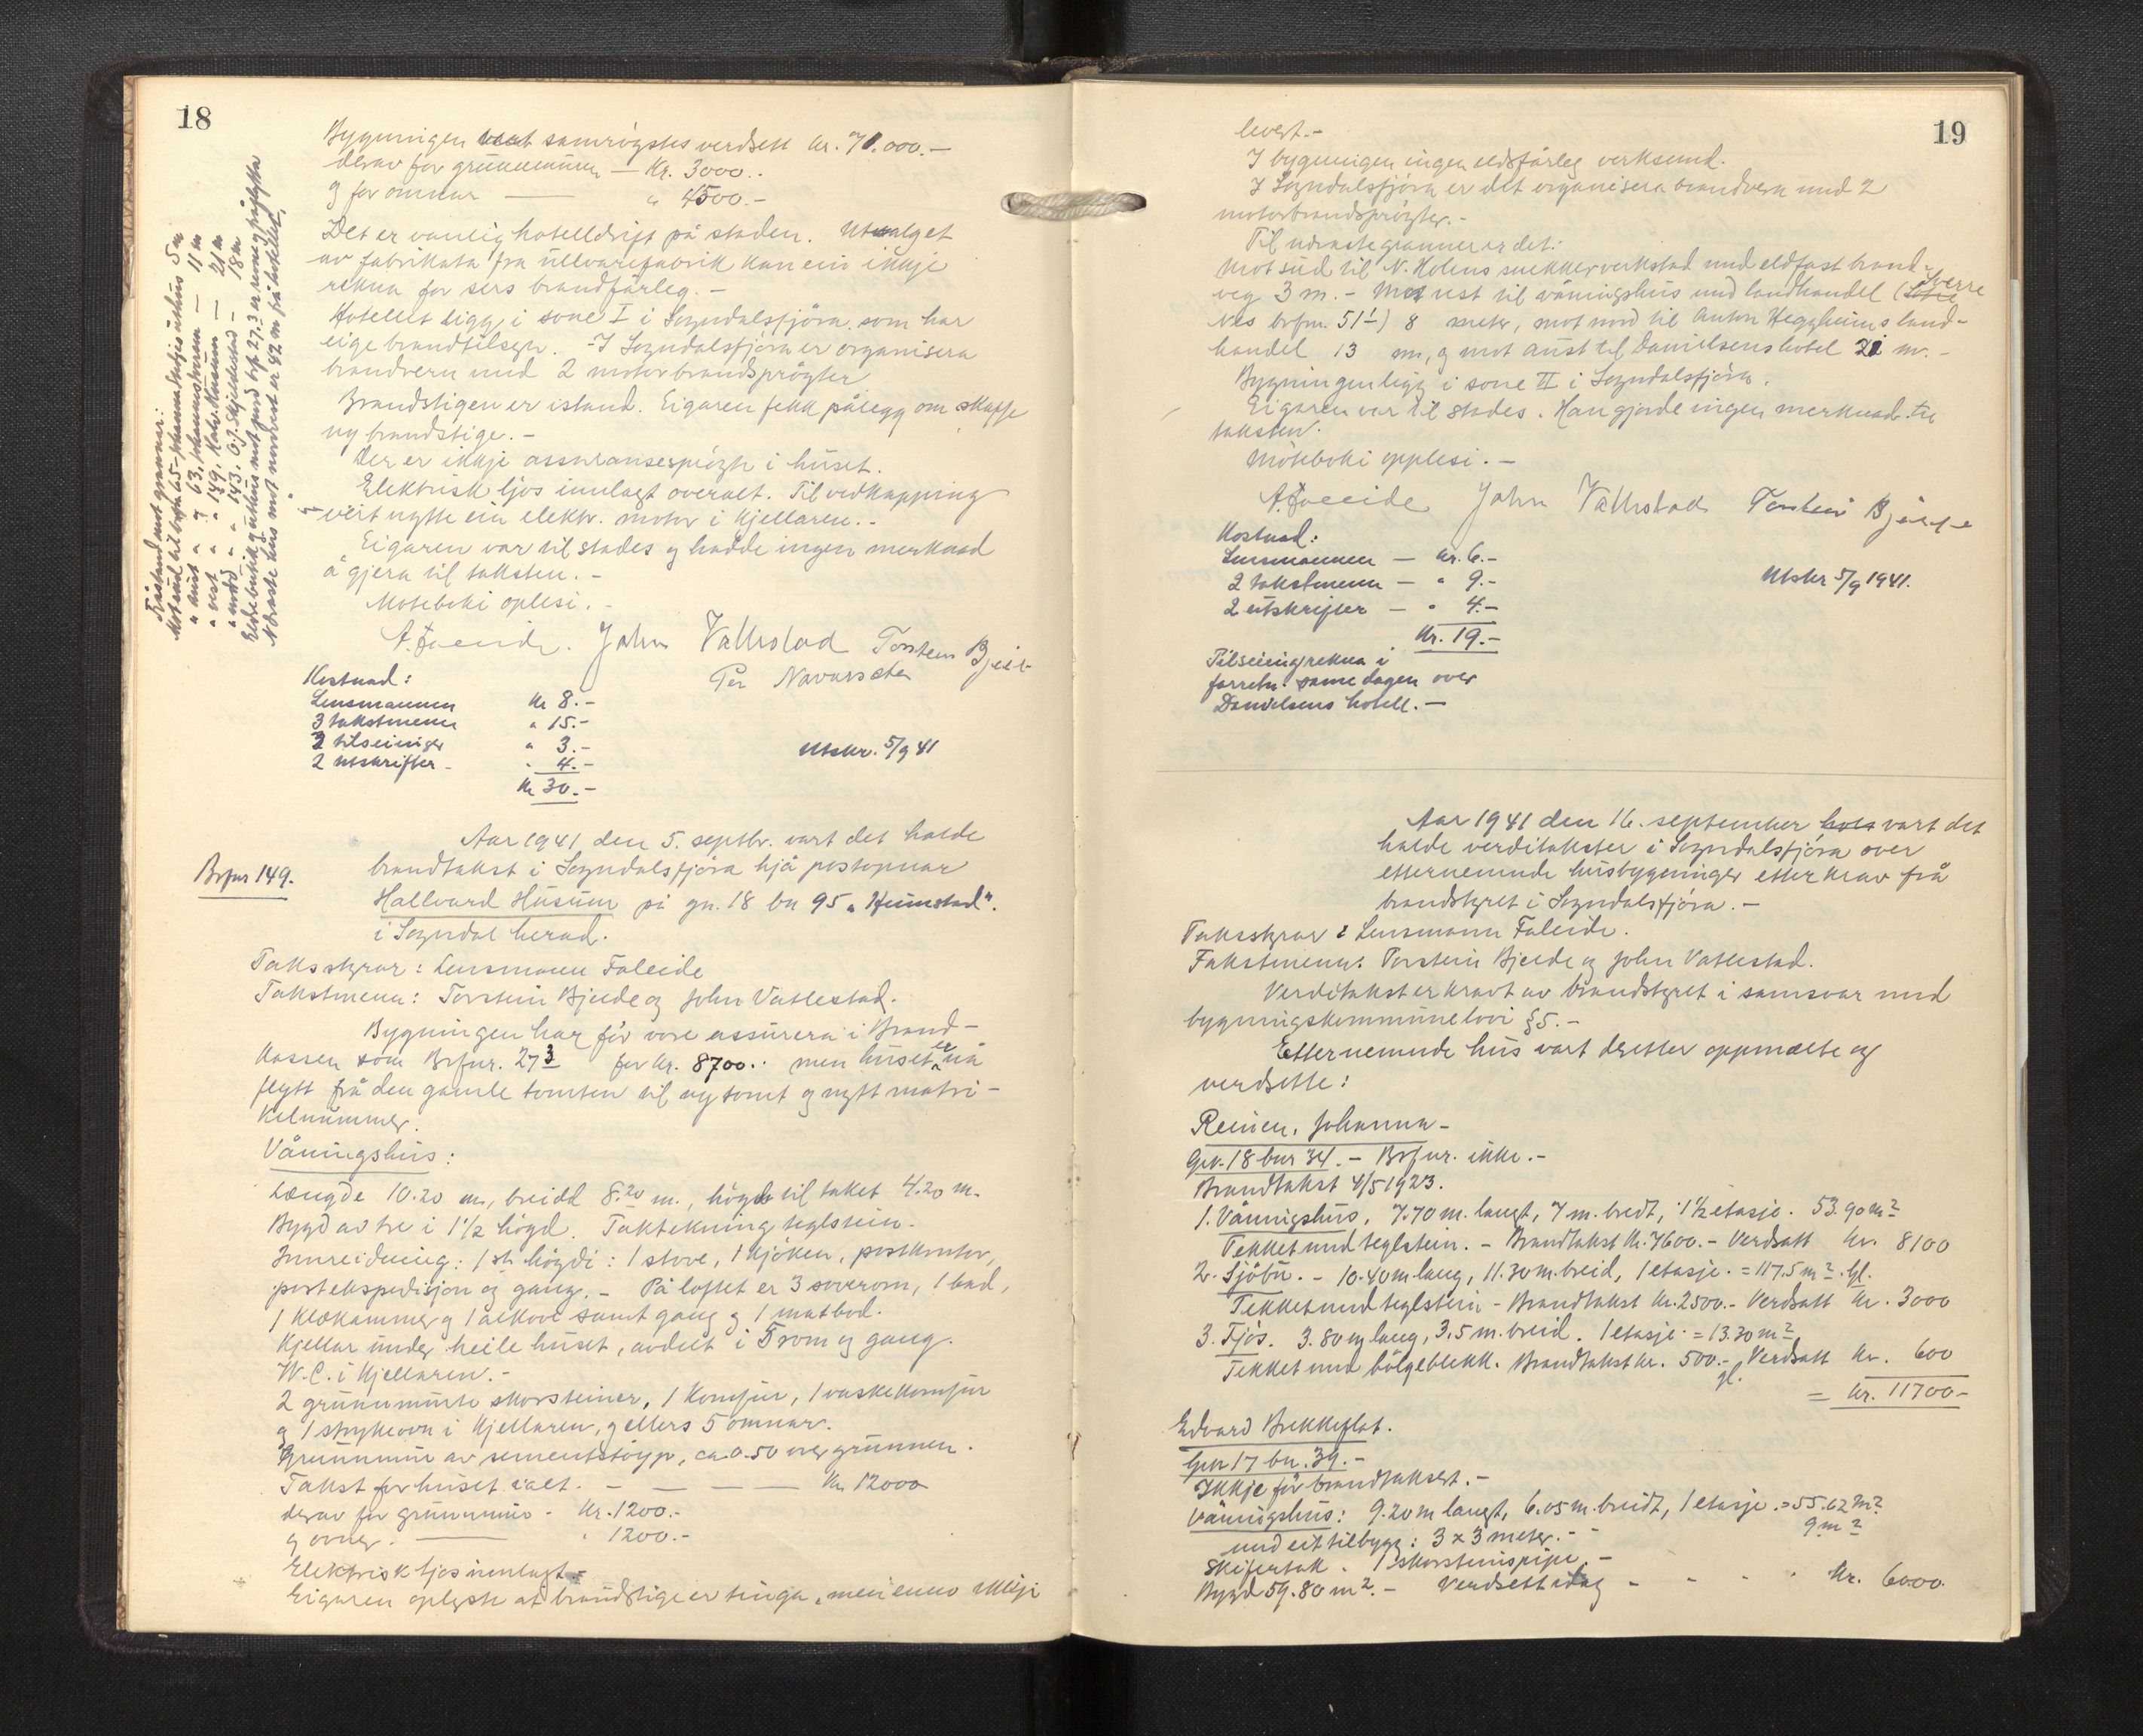 18
Bygningen vart samrøystes verdsett kr. 71.000.-
derav for grunnmuren — Kr. 3000.-
og for omnar — " 4500.-
Det er vanlig hotelldrift på staden. Utvalget
av fabrikata frå ullvarefabrik kan ein ikkje
rekna for sers brandfårleg.-
Hotellet ligg i sone I i Sogndalsfjöra som har
eige brandtilsyn. - I Sogndalsfjöra er organisera
brandvern med 2 motorbrandsprøyter
Brandstigen er istand. Eigaren fekk pålegg om skaffe
ny brandstige.-
Der er ikkje assuransesprøyte i huset.
Elektrisk ljos innlagt overalt. Til vedkapping
vert nytta ein elektr. motor i kjellaren.-
Eigaren var til stades og hadde ingen merknad
å gjera til taksten.-
Møteboki oplesi.-
A. Faleide. John Vatlestad Torstein Bjelde
Per Navarsete
Kostnad:
Lensmannen Kr 8.-
3 takstmenn " 15.-
2 tilseiingar " 3.-
2 utskrifter - " 4.-
Kr 30.-
Utskr. 5/9 41
Avstand mot grannar:
Mot sud til brfn 65- 5 m
" aust " " 63. — 11 m
" vest " " 149. Halv. Husum — 21 m
" nord " " 143. O. J. Skjeldestad - 18 m
Næraste hus mot nordvest er 42 m frå hotellet.
Aar 1941 den 5. septbr. vart det halde
brandtakst i Sogndalsfjöra hjå postopnar
Brfnr 149.
Hallvard Husum på gn. 18 bn 95 "Heimstad".
i Sogndal herad.
Taksstyrar: Lensmann Faleide
Takstmenn: Torstein Bjelde og John Vatlestad.
Bygningen har för vore assurera i Brand-
kassen som Brfnr. 273 for kr. 8700.- men huset er nå
flytt frå den gamle tomten til ny tomt og nytt matri-
kelnummer.
Våningshus:
Længde 10.20 m., breidd 8.20 m., högde til taket 4.20 m.
Bygd av tre i 1½ högd. Taktekning teglstein.
Innreidning: 1ste högdi: 1 stove, 1 kjöken, postkontor,
postekspedisjon og gang.- På loftet er 3 soverom, 1 bad,
1 klokammer og 1 alkove samt gang og 1 matbod.
Kjellar under heile huset, avdelt i 5 rom og gang.
W.C. i kjellaren.-
2 grunnmurte skorsteiner, 1 komfur, 1 vaskekomfur
og 1 strykeovn i kjellaren, og ellers 5 omnar.
Grunnmur av sementstøyp, ca. 0.50 over grunnen.
Takst for huset i alt. - — — — Kr 12000
derav for grunnmur - Kr. 1200.-
og ovner. — " 1200.-
Elektrisk ljos innlagt.-
Eigaren oplyste at brandstige er tinga, men enno ikkje
19
levert.-
I bygningen ingen eldsfårleg verksemd.
I Sogndalsfjöra er det organisera brandvern med 2
motorbrandsprøyter.-
Til næraste grannar er det:
Mot sud til N. Holens snekkerverkstad med eldfast brand-
veg 3 m.- Mot vest til våningshus med landhandel (Sverre
Nes brfnr. 51¹) 8 meter, mot nord til Anton Heggheims land-
handel 13 m, og mot aust til Danielsens hotel 21 m.-
Bygningen ligg i sone II i Sogndalsfjöra.
Eigaren var til stades. Han gjorde ingen merknad til
taksten.
Møteboki opplesi.-
A. Faleide John Vatlestad Torstein Bjelde
Kostnad:
Lensmannen — kr. 6.-
2 takstmenn — " 9.-
2 utskrifter — " 4.-
Kr. 19.-
Utskr 5/9 1941.
Tilseiing rekna i
forretn. same dagen over
Danielsens hotell.-
Aar 1941 den 16. september vart det
halde verditakster i Sogndalsfjöra over
etternemnde husbygninger etter krav frå
brandstyret i Sogndalsfjöra.-
Taksstyrar: Lensmann Faleide.
Takstmenn: Torstein Bjelde og John Vatlestad.
Verditakst er kravt av brandstyret i samsvar med
bygningskommunelovi §5.-
Etternemnde hus vart deretter oppmælte og
verdsette:
Reinen, Johanna-
Gnr. 18 bnr 34.- Brfnr. ikke.-
Brandtakst 4/5 1923.
1. Våningshus, 7.70 m. langt, 7 m. breidt, 1½ etasje. 53.90 m²
Tekket med teglstein.- Brandtakst Kr. 7600.- Verdsatt kr. 8100
2. Sjöbu.- 10.40 m lang, 11.30 m. breid, 1 etasje. = 117.5 m². Gl.
Tekket med teglstein - Brandtakst Kr. 2500.- Verdsatt kr. 3000
3. Fjös. 3.80 m lang, 3.5 m. breid. 1 etasje = 13.30 m²
Tekket med bölgeblekk. Brandtakst kr. 500.- gl. Verdsatt kr. 600
= kr. 11700-
Edvard Brekkeflat.
Gnr 17 bn. 39.-
Ikkje för brandtaksert.-
Våningshus: 9.20 m langt, 6.05 m. breidt, 1 etasje. = 55.62 m²
med eit tilbygg: 3 x 3 meter.- 9 m²
Skifertak. 1 skorsteinspipe.-
Bygd 59.80 m².- Verdsett idag - - - kr. 6000.